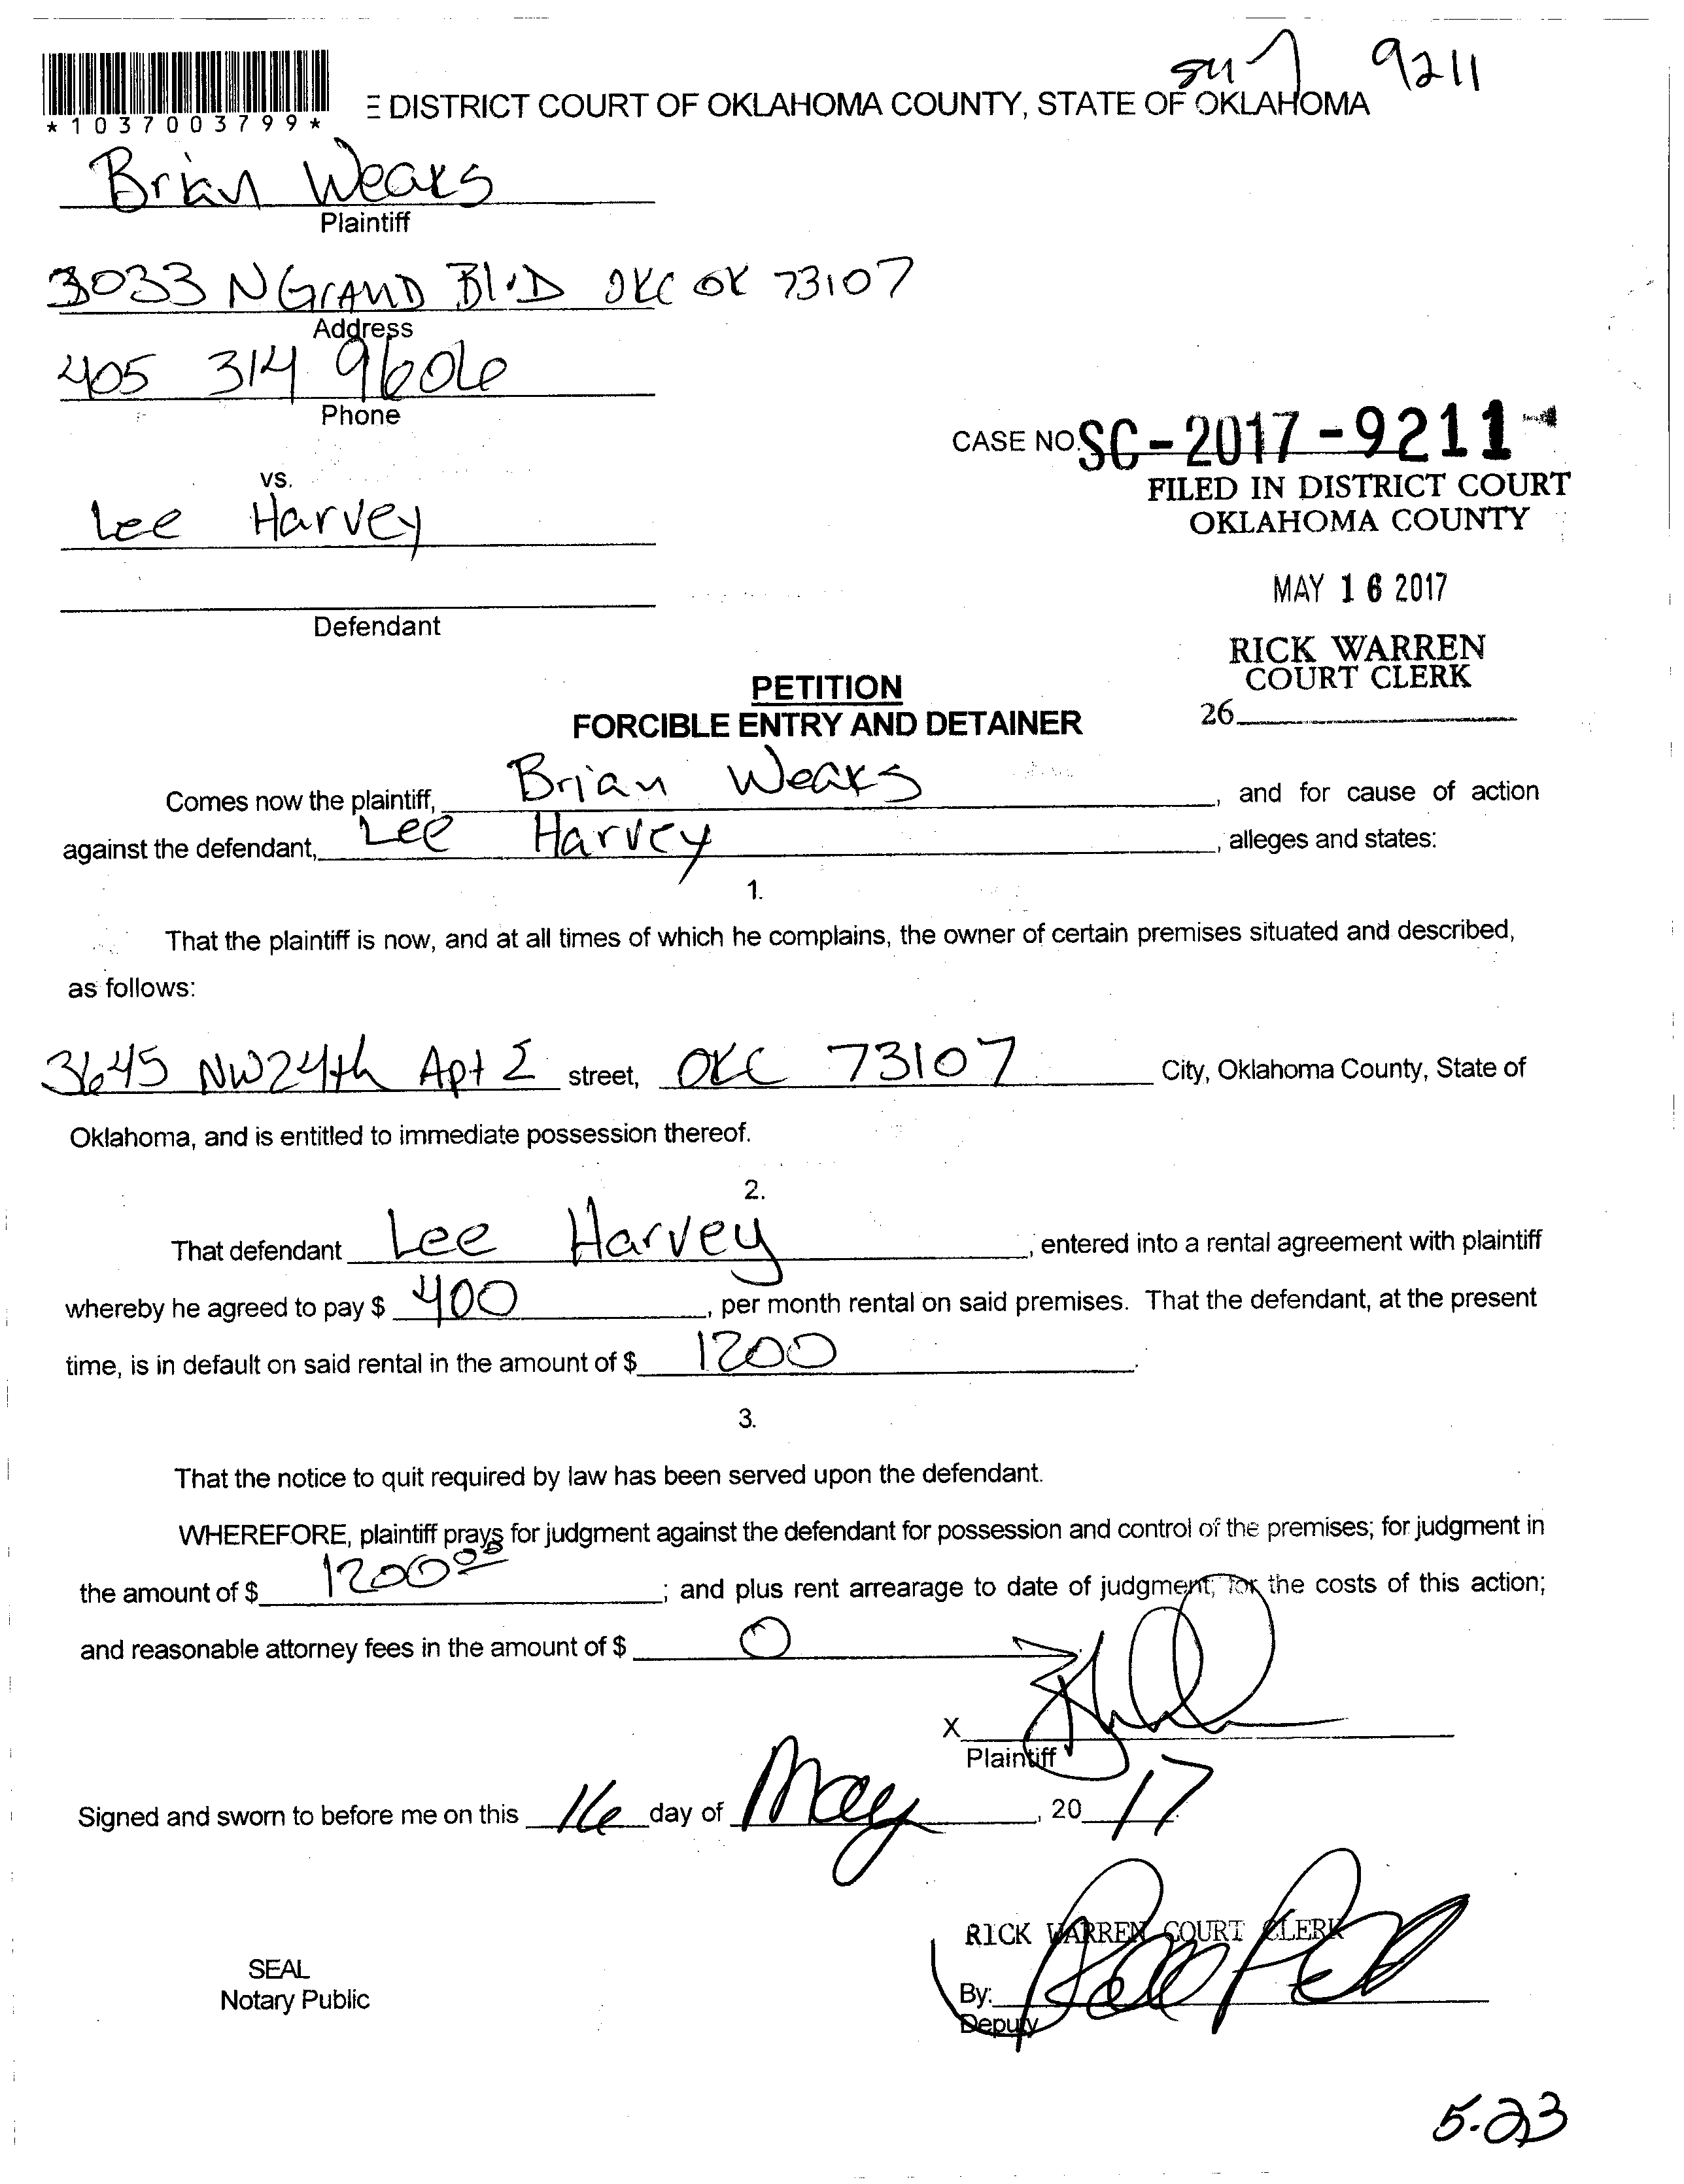 9211
*1037003799*
E DISTRICT COURT OF OKLAHOMA COUNTY, STATE OF OKLAHOMA
Brian Weaks
Plaintiff
3033 N GRAND Blvd OKC OK 73107
Address
405 314 9606
Phone
CASE NO. SC-2017-9211
FILED IN DISTRICT COURT
OKLAHOMA COUNTY
vs.
Lee Harvey
MAY 16 2017
Defendant
RICK WARREN
COURT CLERK
26
PETITION
FORCIBLE ENTRY AND DETAINER
Comes now the plaintiff, Brian Weaks, and for cause of action
against the defendant, Lee Harvey, alleges and states:
1.
That the plaintiff is now, and at all times of which he complains, the owner of certain premises situated and described,
as follows:
3645 NW 24th Apt 2 street, OKC 73107 City, Oklahoma County, State of
Oklahoma, and is entitled to immediate possession thereof.
2.
That defendant Lee Harvey, entered into a rental agreement with plaintiff
whereby he agreed to pay $ 400, per month rental on said premises. That the defendant, at the present
time, is in default on said rental in the amount of $ 1200.
3.
That the notice to quit required by law has been served upon the defendant.
WHEREFORE, plaintiff prays for judgment against the defendant for possession and control of the premises; for judgment in
the amount of $ 1200.00; and plus rent arrearage to date of judgment; for the costs of this action;
and reasonable attorney fees in the amount of $ 0
X
Plaintiff
Signed and sworn to before me on this 16 day of May, 20 17.
RICK WARREN COURT CLERK
SEAL
Notary Public
By:
Deputy
5-23